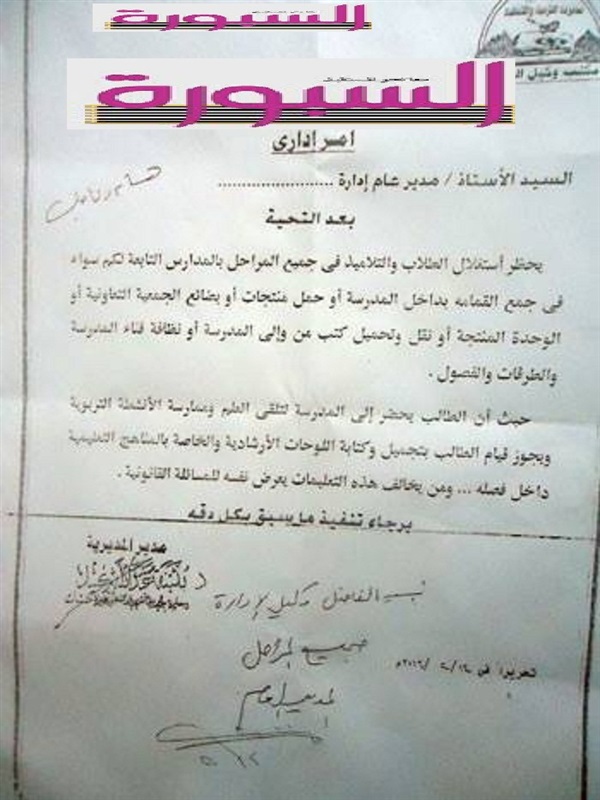 السبورة
السبورة
امر إدارى
السيد الأستاذ / مدير عام إدارة ......................
بعد التحية
يحظر أستغلال الطلاب والتلاميذ فى جميع المراحل بالمدارس التابعة لكم سواء
فى جمع القمامه بداخل المدرسة أو حمل منتجات أو بضائع الجمعية التعاونية أو
الوحدة المنتجة أو نقل وتحميل كتب من وإلى المدرسة أو نظافة فناء المدرسة
والطرقات والفصول .
حيث أن الطالب يحضر إلى المدرسة لتلقى العلم وممارسة الأنشطة التربوية
ويجوز قيام الطالب بتجميل وكتابة اللوحات الأرشادية والخاصة بالمناهج التعليمية
داخل فصله ... ومن يخالف هذه التعليمات يعرض نفسه للمسائلة القانونية .
برجاء تنفيذ ما سبق بكل دقه
مدير المديرية
وكيل الإدارة
جميع المراحل
تحريرا فى
المدير العام